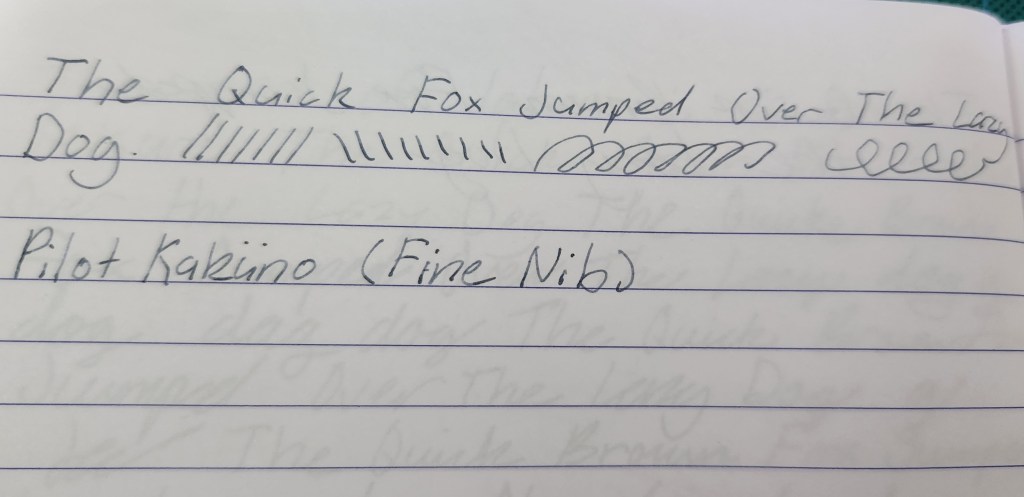 The Quick Fox Jumped Over The Lazy
Dog.
Pilot Kakuno (Fine Nib)